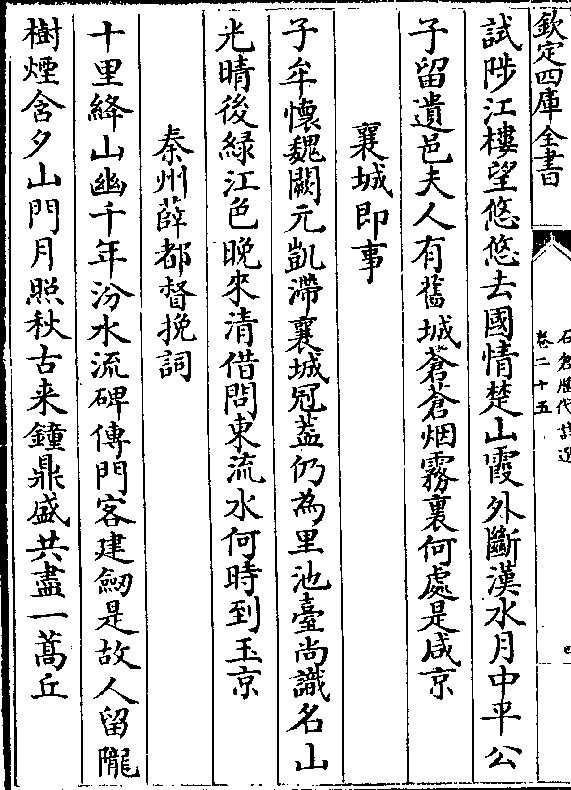 欽定四庫全書
石倉歴代詩選
卷二十五
四
試陟江樓望悠悠去國情楚山霞外斷漢水月中平公
子留遺邑夫人有舊城蒼蒼烟霧裏何處是咸京
襄城即事
子牟懷魏闕元凱滯襄城冠葢仍為里池臺尚識名山
光晴後緑江色晚來清借問東流水何時到玉京
秦州薛都督挽詞
十里絳山幽千年汾水流碑傳門客建劒是故人留隴
樹煙含夕山門月照秋古来鐘鼎盛共盡一蒿丘